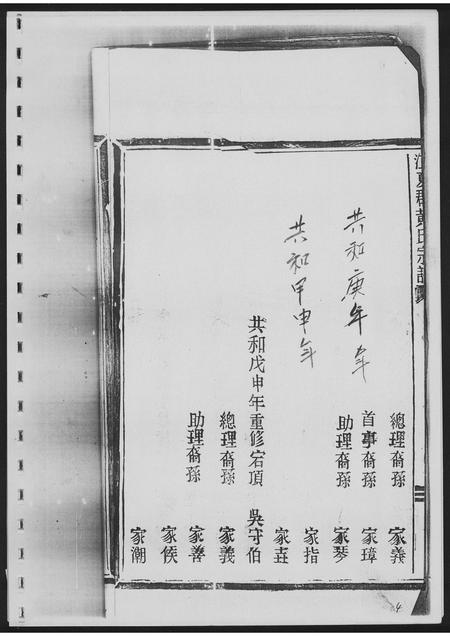 江夏郡黃氏宗譜
總理裔孫 家義
首事裔孫 家璋
助理裔孫 家琴
共和庚年
家指
共和甲申年
家垚
共和戊申年重修宕頂 吳守伯
總理裔孫 家義
助理裔孫 家善
家侯
家潮
4